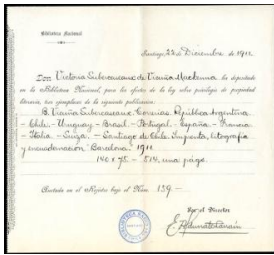 Biblioteca Nacional
Santiago, 22 de Diciembre de 1911.
Don Victoria Subercaseaux de Vicuña Mackenna ha depositado
en la Biblioteca Nacional, para los efectos de la ley sobre privilegio de propiedad
literaria, tres ejemplares de la siguiente publicacion:
B. Vicuña Subercaseaux. Correrías. República Argentina.
- Chile. - Uruguay - Brasil - Portugal - España - Francia
- Italia - Suiza. - Santiago de Chile. Imprenta, litografía
y encuadernacion "Barcelona". 1911
140 x 75 - 514, una págs.
Anotada en el Rejistro bajo el Núm. 139.-
Por el Director